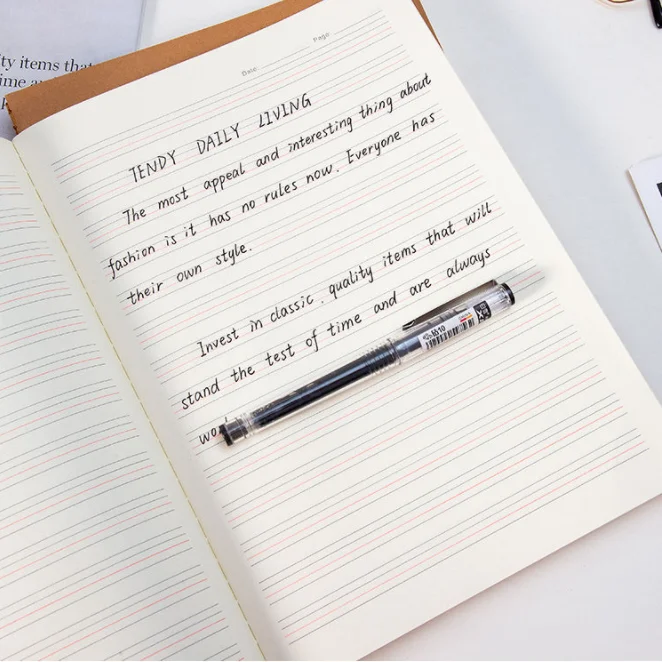 ty items that
Date
Page
TENDY DAILY LIVING
The most appeal and interesting thing about
fashion is it has no rules now. Everyone has
their own style.
Invest in classic, quality items that will
stand the test of time and are always